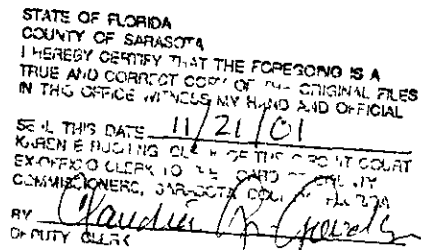 STATE OF FLORIDA
COUNTY OF SARASOTA
I HEREBY CERTIFY THAT THE FOREGOING IS A
TRUE AND CORRECT COPY OF THE ORIGINAL FILES
IN THIS OFFICE WITNESS MY HAND AND OFFICIAL
SEAL THIS DATE 11/21/01
KAREN E RUSHING, CLERK OF THE CIRCUIT COURT
EX-OFFICIO CLERK TO THE BOARD OF COUNTY
COMMISSIONERS, SARASOTA COUNTY FLORIDA
BY Claudia
DEPUTY CLERK